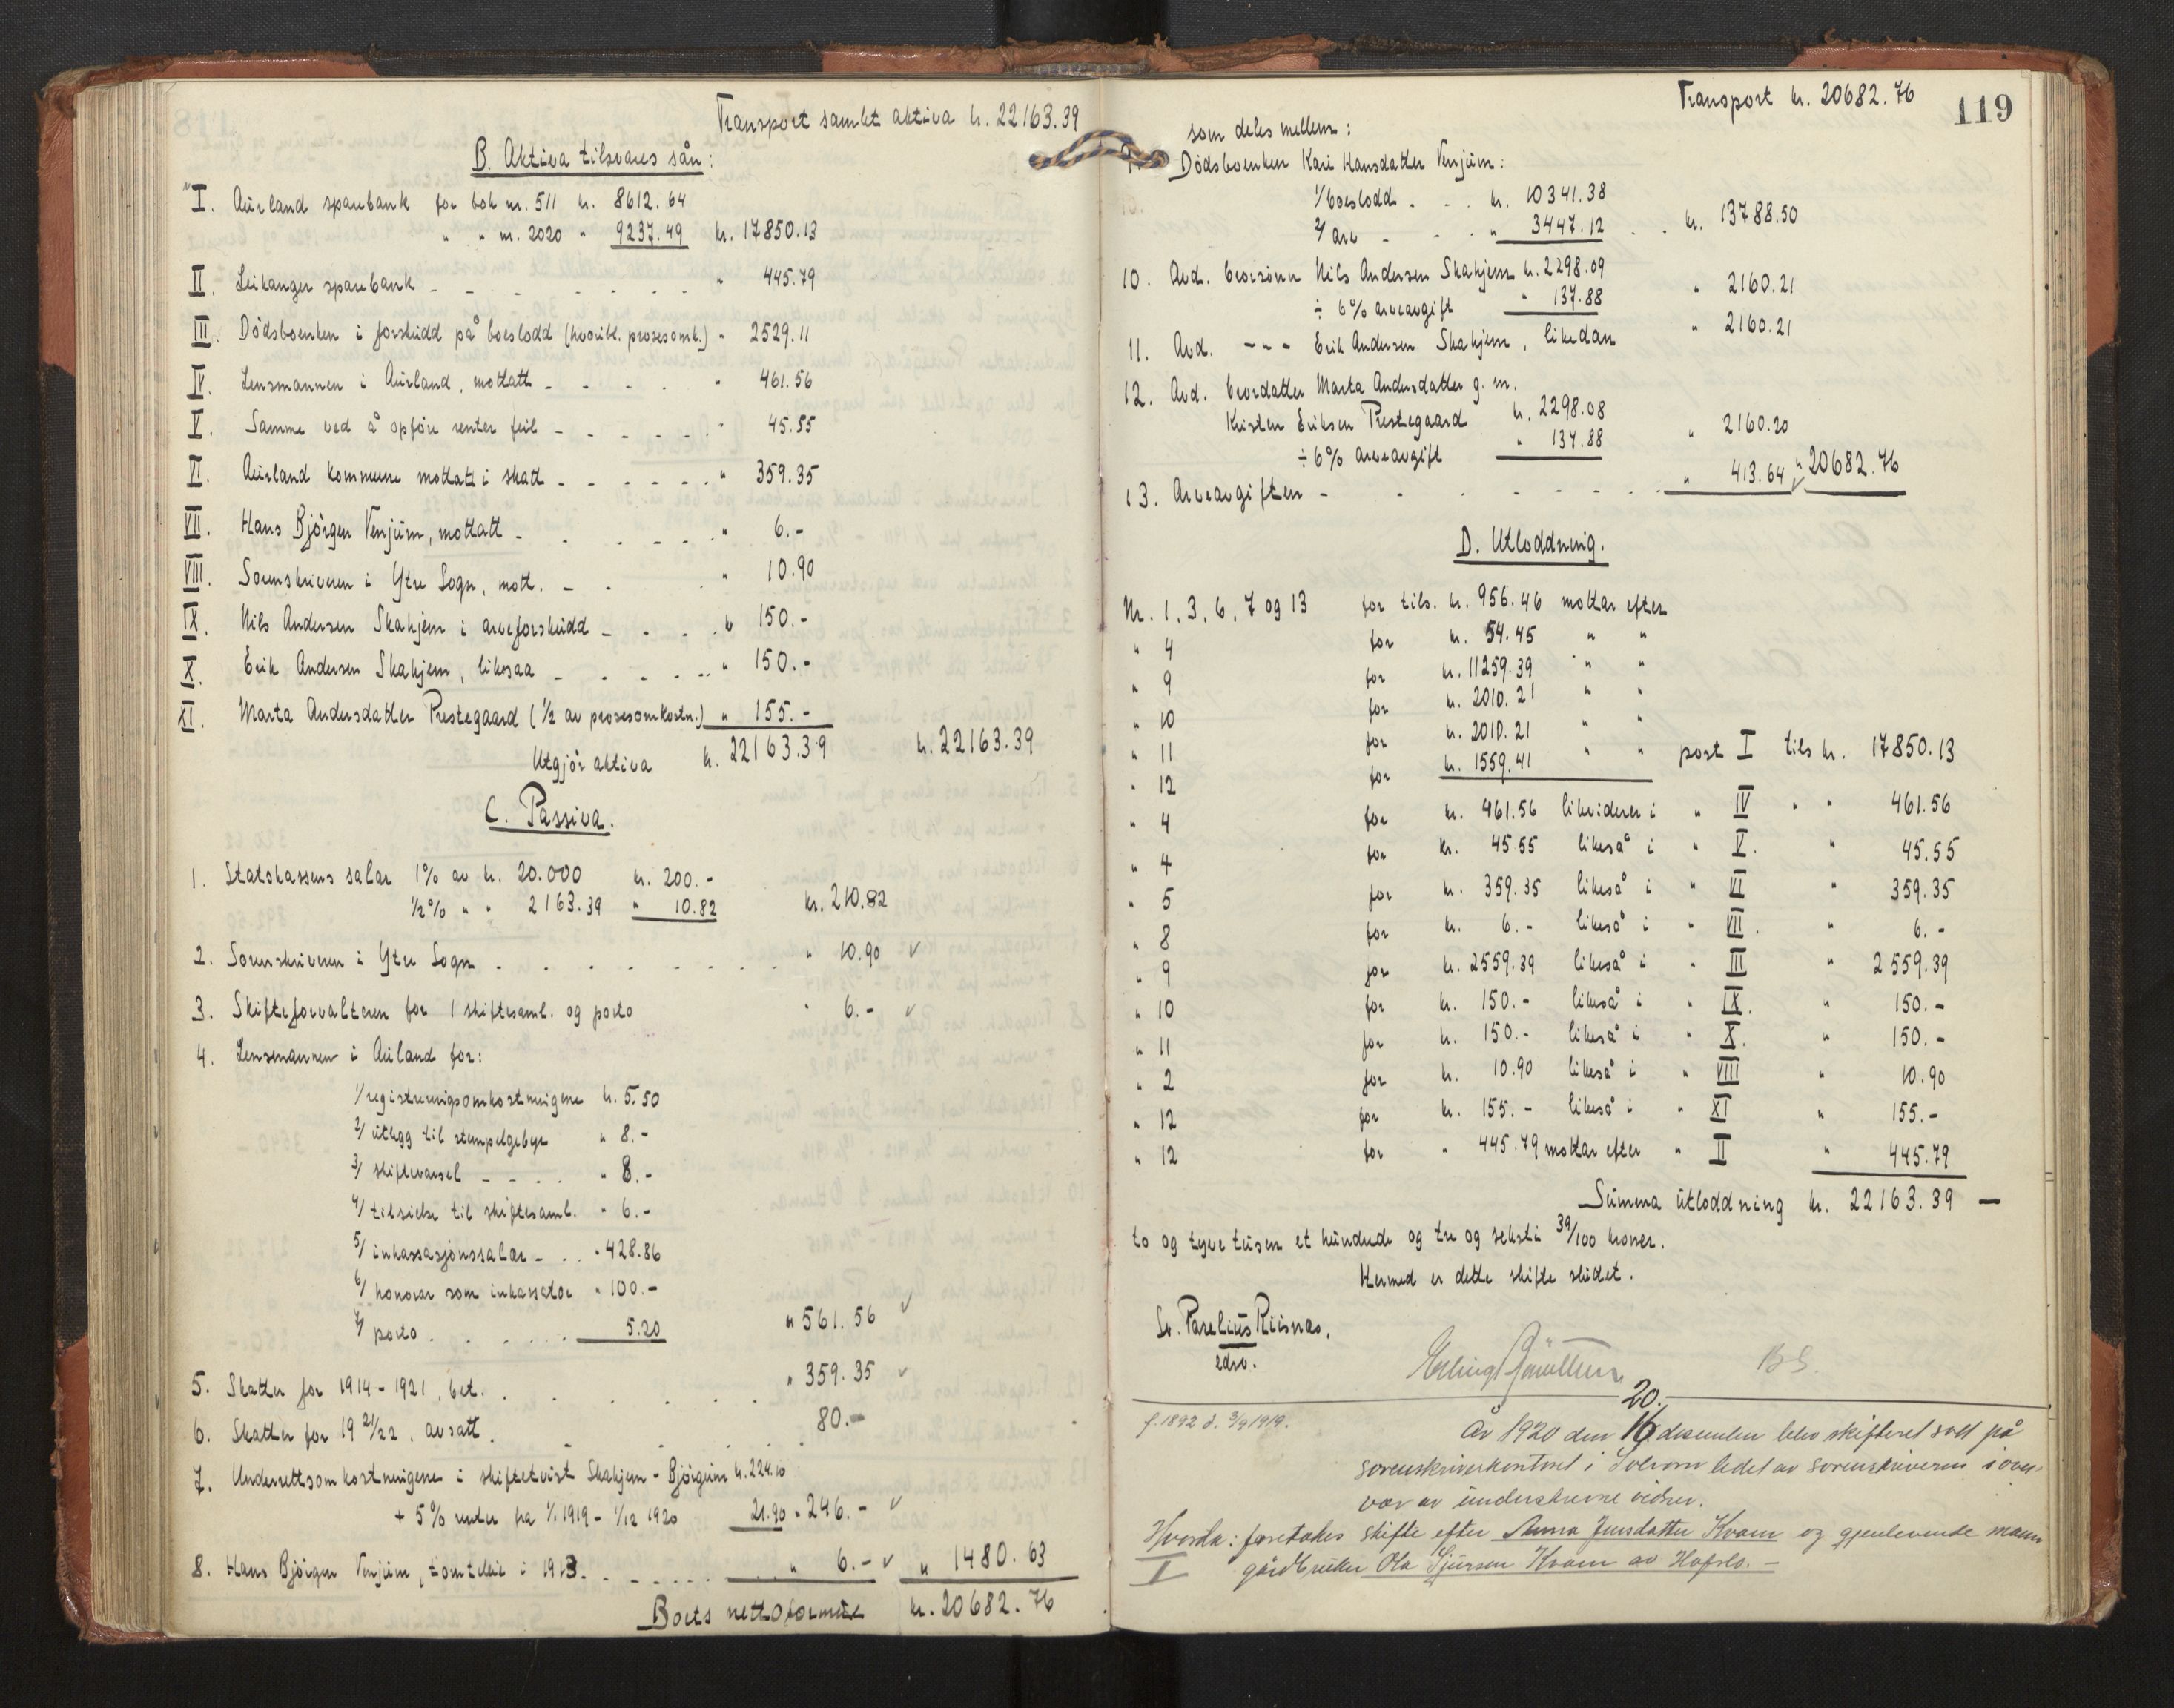 Transport samlet aktiva kr. 22163.39
B. Aktiva tilsvares sån:
I. Aurland sparebank for bok nr. 511 kr. 8612.64
" " nr. 2020 " 9237.49 kr. 17850.13
II. Leikanger sparebank - - - - - - - " 445.79
III. Dödsboenken i forskudd på boeslodd (hvoribl. prosesomk.) - 2529.11
IV. Lensmannen i Aurland, mottatt - - - - " 461.56
V. Samme ved å opföre renter feil - - - - - " 45.55
VI. Aurland kommune mottatt i skatt - - - - - - " 359.35
VII. Hans Björgen Venjum, mottatt - - - - - - " 6.-
VIII. Sorenskriveren i Ytre Sogn, mott. - - - " 10.90
IX. Nils Andersen Skahjem i arveforskudd - - - - " 150.-
X. Erik Andersen Skahjem, likesaa - - - - - " 150.-
XI. Marta Andersdatter Prestegaard (1/2 av prosesomkostn.) " 155.-
Utgjör aktiva kr. 22163.39 kr. 22163.39
C. Passiva.
1. Statskassens salar 1% av kr. 20.000 kr. 200.-
1/2% " " 2163.39 " 10.82 kr. 210.82
2. Sorenskriveren i Ytre Sogn . . . . . . . " 10.90 ✓
3. Skifteforvalteren for 1 skiftesaml. og porto " 6.- ✓
4. Lensmannen i Aurland for:
1/ registreringsomkostningene kr. 5.50
2/ utlegg til stempelgebyr " 8.-
3/ skiftevarsel - - - - " 8.-
4/ tilsielse til skiftesaml. " 6.-
5/ inkassasjonssalar - . . " 428.86
6/ honorar som inkassator " 100.-
7/ porto . . . . . 5.20 " 561.56 ✓
5. Skatter for 1914-1921, bet. . . . . . . " 359.35 ✓
6. Skatter for 19 21/22, avsatt . - - - 80.-
7. Underrettsomkostningene i skiftetvist Skahjem - Björgum kr. 224.10
+ 5% renter fra 1/1 1919 - 1/12 1920 21.90 " 246.- ✓
8. Hans Björgen Venjum, tomteleie i 1913. - - - - - " 6.- ✓ " 1480.63
Boets nettoformue kr. 20682.76
Transport kr. 20682.76
119
som deles mellem:
Dödsboenken Kari Hansdatter Venjum:
1/ boeslodd . - . . kr. 10341.38
2/ arv - - - - " 3447.12 . . kr. 13788.50
10. Avd. brorsönn Nils Andersen Skahjem kr. 2298.09
÷ 6% arveavgift " 137.88 " 2160.21
11. Avd. - " - Erik Andersen Skahjem, likedan " 2160.21
12. Avd. brordatter Marta Andersdatter g. m.
Kristen Eriksen Prestegaard kr. 2298.08
÷ 6% arveavgift " 137.88 " 2160.20
13. Arveavgiften - - - - - - - " 413.64 " 20682.76
D. Utloddning.
Nr. 1, 3, 6, 7 og 13 for tils. kr. 956.46 mottar efter
" 4 for kr. 54.45 " "
" 9 for kr. 11259.39 " "
" 10 for kr. 2010.21 " "
" 11 for kr. 2010.21 " "
" 12 for kr. 1559.41 " " post I tils kr. 17850.13
" 4 for kr. 461.56 likviderer i " IV " " 461.56
" 4 for kr. 45.55 likeså i " V. " 45.55
" 5 for kr. 359.35 likeså i " VI " 359.35
" 8 for kr. 6.- likeså i " VII. " 6.-
" 9 for kr. 2559.39 likeså i " III " 2559.39
" 10 for kr. 150.- likeså i " IX. " 150.-
" 11 for kr. 150.- likeså i " X. " 150.-
" 2 for kr. 10.90 likeså i " VIII " 10.90
" 12 for kr. 155.- likeså i " XI " 155.-
" 12 for " 445.79 mottar efter " II " 445.79
Summa utloddning kr. 22163.39 —
to og tyve tusen et hundrede og tre og seksti 39/100 kroner.
Hermed er dette skifte sluttet.
Parelius Riisnæs,
edsv.
20.
f. 1892 d. 3/9 1919.
År 1920 den 16 desember blev skifterett satt på
sorenskriverkontoret i Solvorn ledet av sorenskriveren i over-
vær av underskrevne vidner.
Hvorda: foretokes skifte efter Anna Jensdatter Kvam og gjenlevende mann
I gårdbruker Ola Sjursen Kvam av Hafslo. —